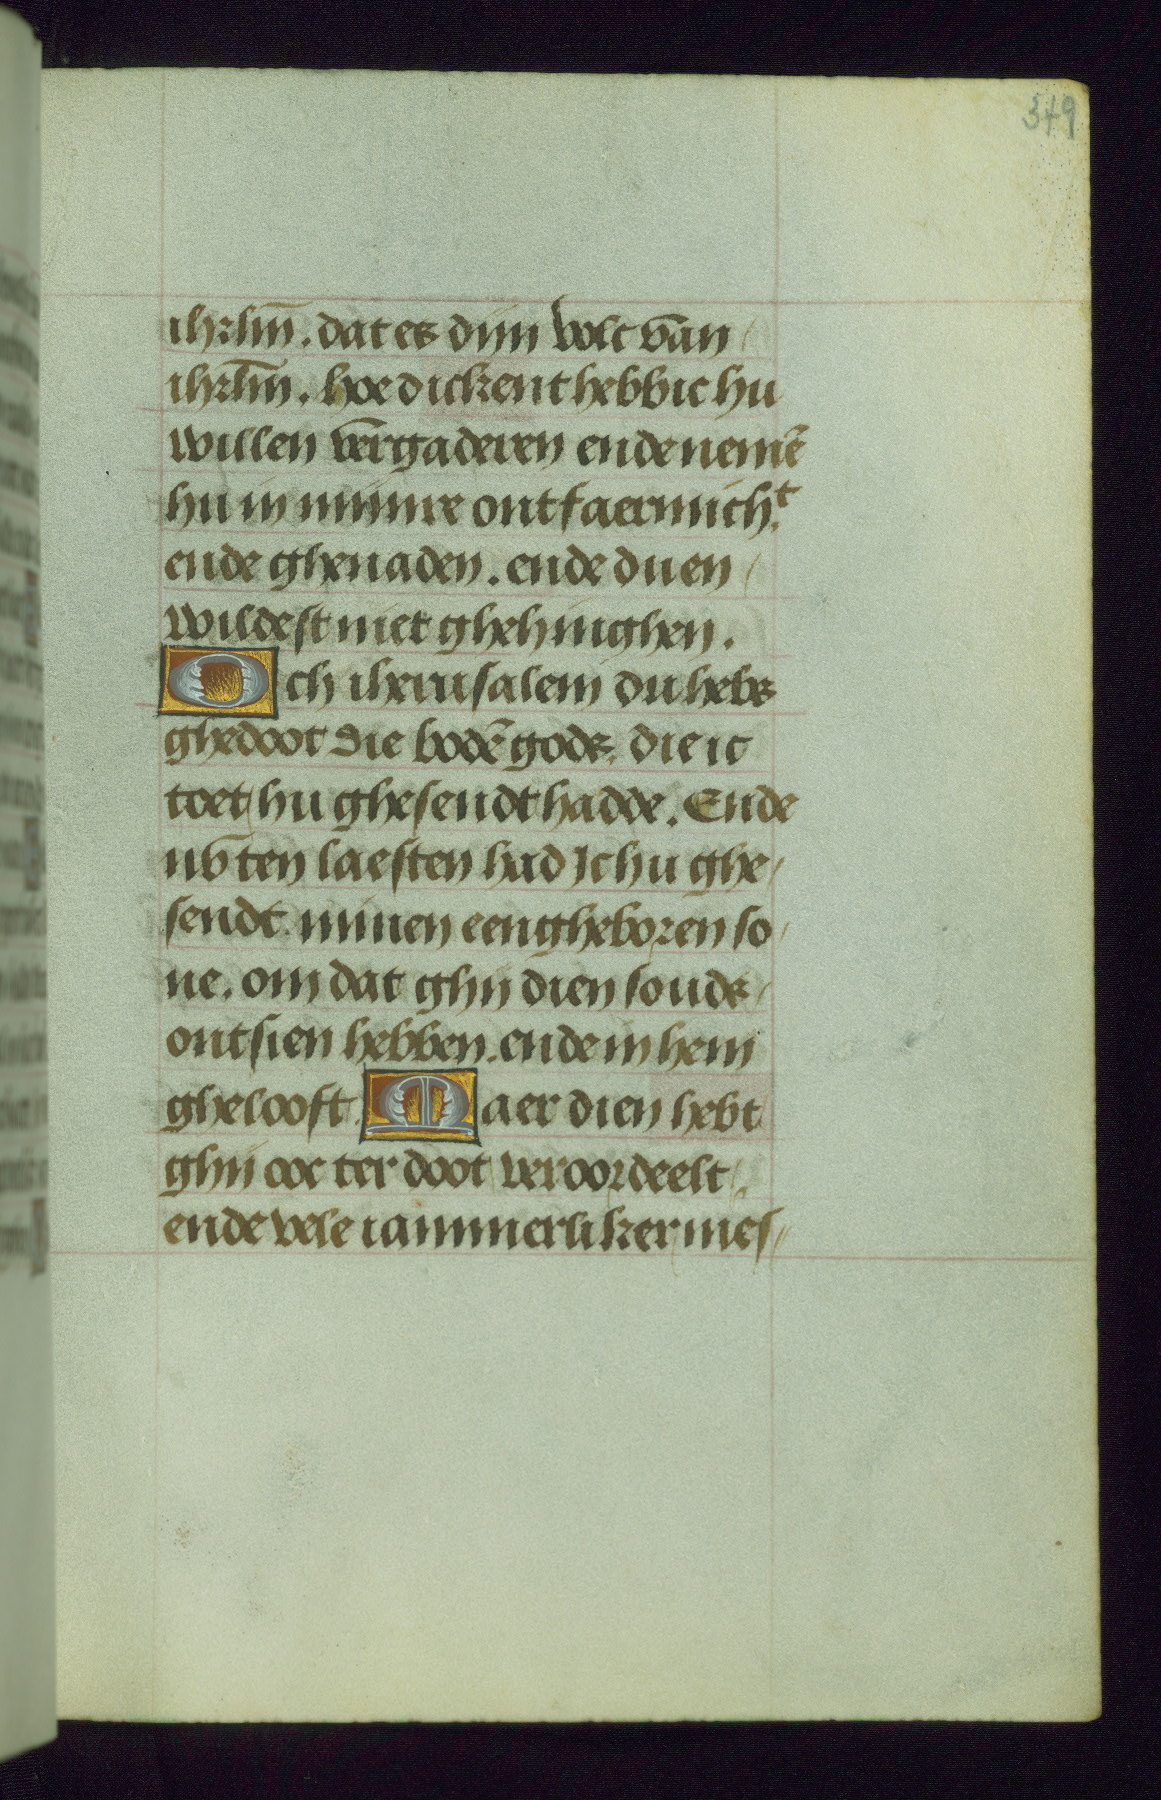 349
ihrlm̄. dat es dijn volc van
ihrlm̄. hoe dickent hebbic hu
willen vergaderen ende nemē
hu in mijnre ontfaermich.t
ende ghenaden. ende du en
wildest niet ghehinghen.
Och iherusalem du hebs
ghedoot die bodē gods. die ic
toet hu ghesendt hadde. Ende
nv ten laesten had Ic hu ghe
sendt minen eengheboren so
ne. om dat ghij dien souds
ontsien hebben. ende in hem
ghelooft. Maer dien hebt
ghij ooc ter doot veroordeelt.
ende vele iammerliker mes